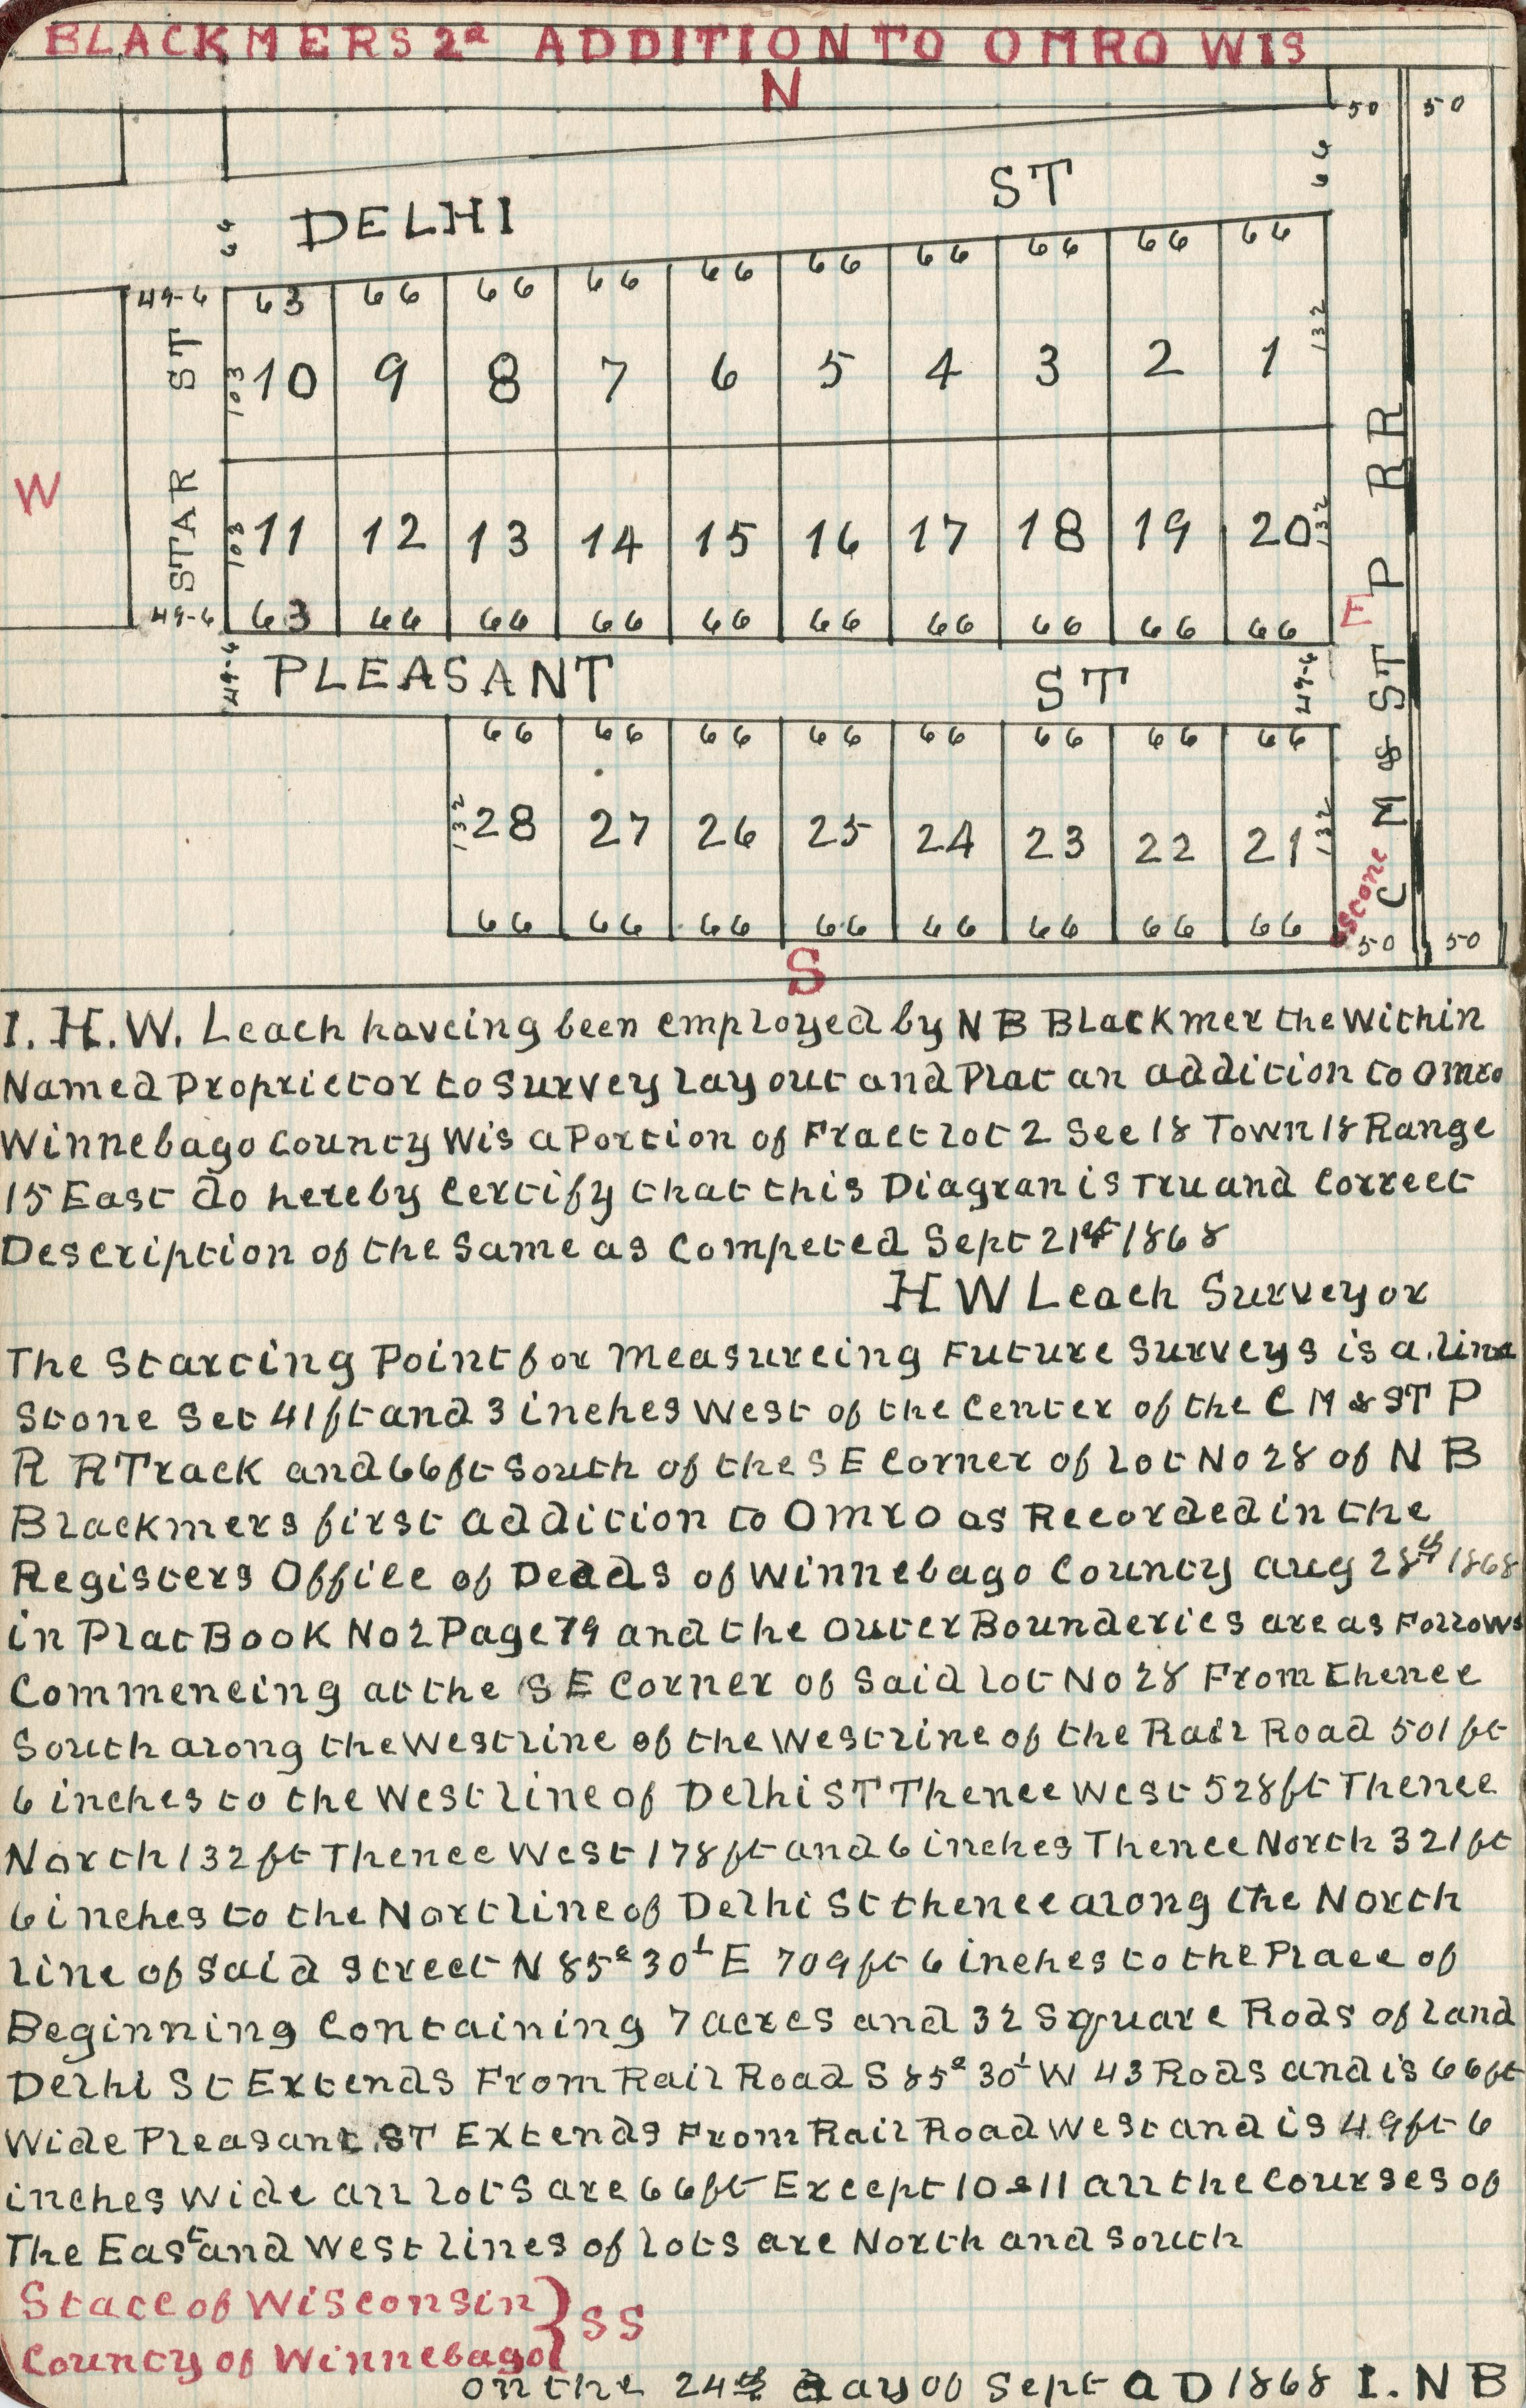 BLACKMERS 2d ADDITION TO OMRO WIS
N
50 50
ST
66
DELHI
66
49-6 63 66 66 66 66 66 66 66 66 66
ST
103 10 9 8 7 6 5 4 3 2 1 132
W
STAR
103 11 12 13 14 15 16 17 18 19 20 132
49-6 63 66 66 66 66 66 66 66 66 66
E
C M & ST P RR
49-6 PLEASANT ST 49-6
66 66 66 66 66 66 66 66
132 28 27 26 25 24 23 22 21 132
66 66 66 66 66 66 66 66
Stone
50 50
S
I. H. W. Leach haveing been employed by N B Blackmer the Within
Named Proprietor to Survey lay out and Plat an addition to Omro
Winnebago County Wis a Portion of Fract lot 2 Sec 18 Town 18 Range
15 East do hereby Certify that this Diagran is Tru and Correct
Description of the Same as Competed Sept 21st 1868
H W Leach Surveyor
The Starting Point for Measureing Future Surveys is a. lime
Stone Set 41 ft and 3 inches West of the Center of the C M & ST P
R R Track and 66 ft South of the S E Corner of Lot No 28 of N B
Blackmers first addition to Omro as Recorded in the
Registers Office of Deads of Winnebago County aug 28th 1868
in Plat Book No 2 Page 79 and the outer Bounderies are as Follows
Commencing at the S E Corner of Said lot No 28 From thence
South along the West line of the West line of the Rail Road 501 ft
6 inches to the West line of Delhi ST Thence West 528 ft Thence
North 132 ft Thence West 178 ft and 6 inches Thence North 321 ft
6 inches to the Nort line of Delhi St thence along the North
line of Said Street N 85d 30' E 709 ft 6 inches to the Place of
Beginning Containing 7 acres and 32 Square Rods of land
Delhi St Extends From Rail Road S 85d 30' W 43 Rods and is 66 ft
Wide Pleasant ST Extends From Rail Road West and is 49 ft 6
inches Wide all lots are 66 ft Except 10 & 11 all the Courses of
The East and West lines of lots are North and South
State of Wisconsin } SS
County of Winnebago
on the 24th day of Sept A D 1868 I. N B